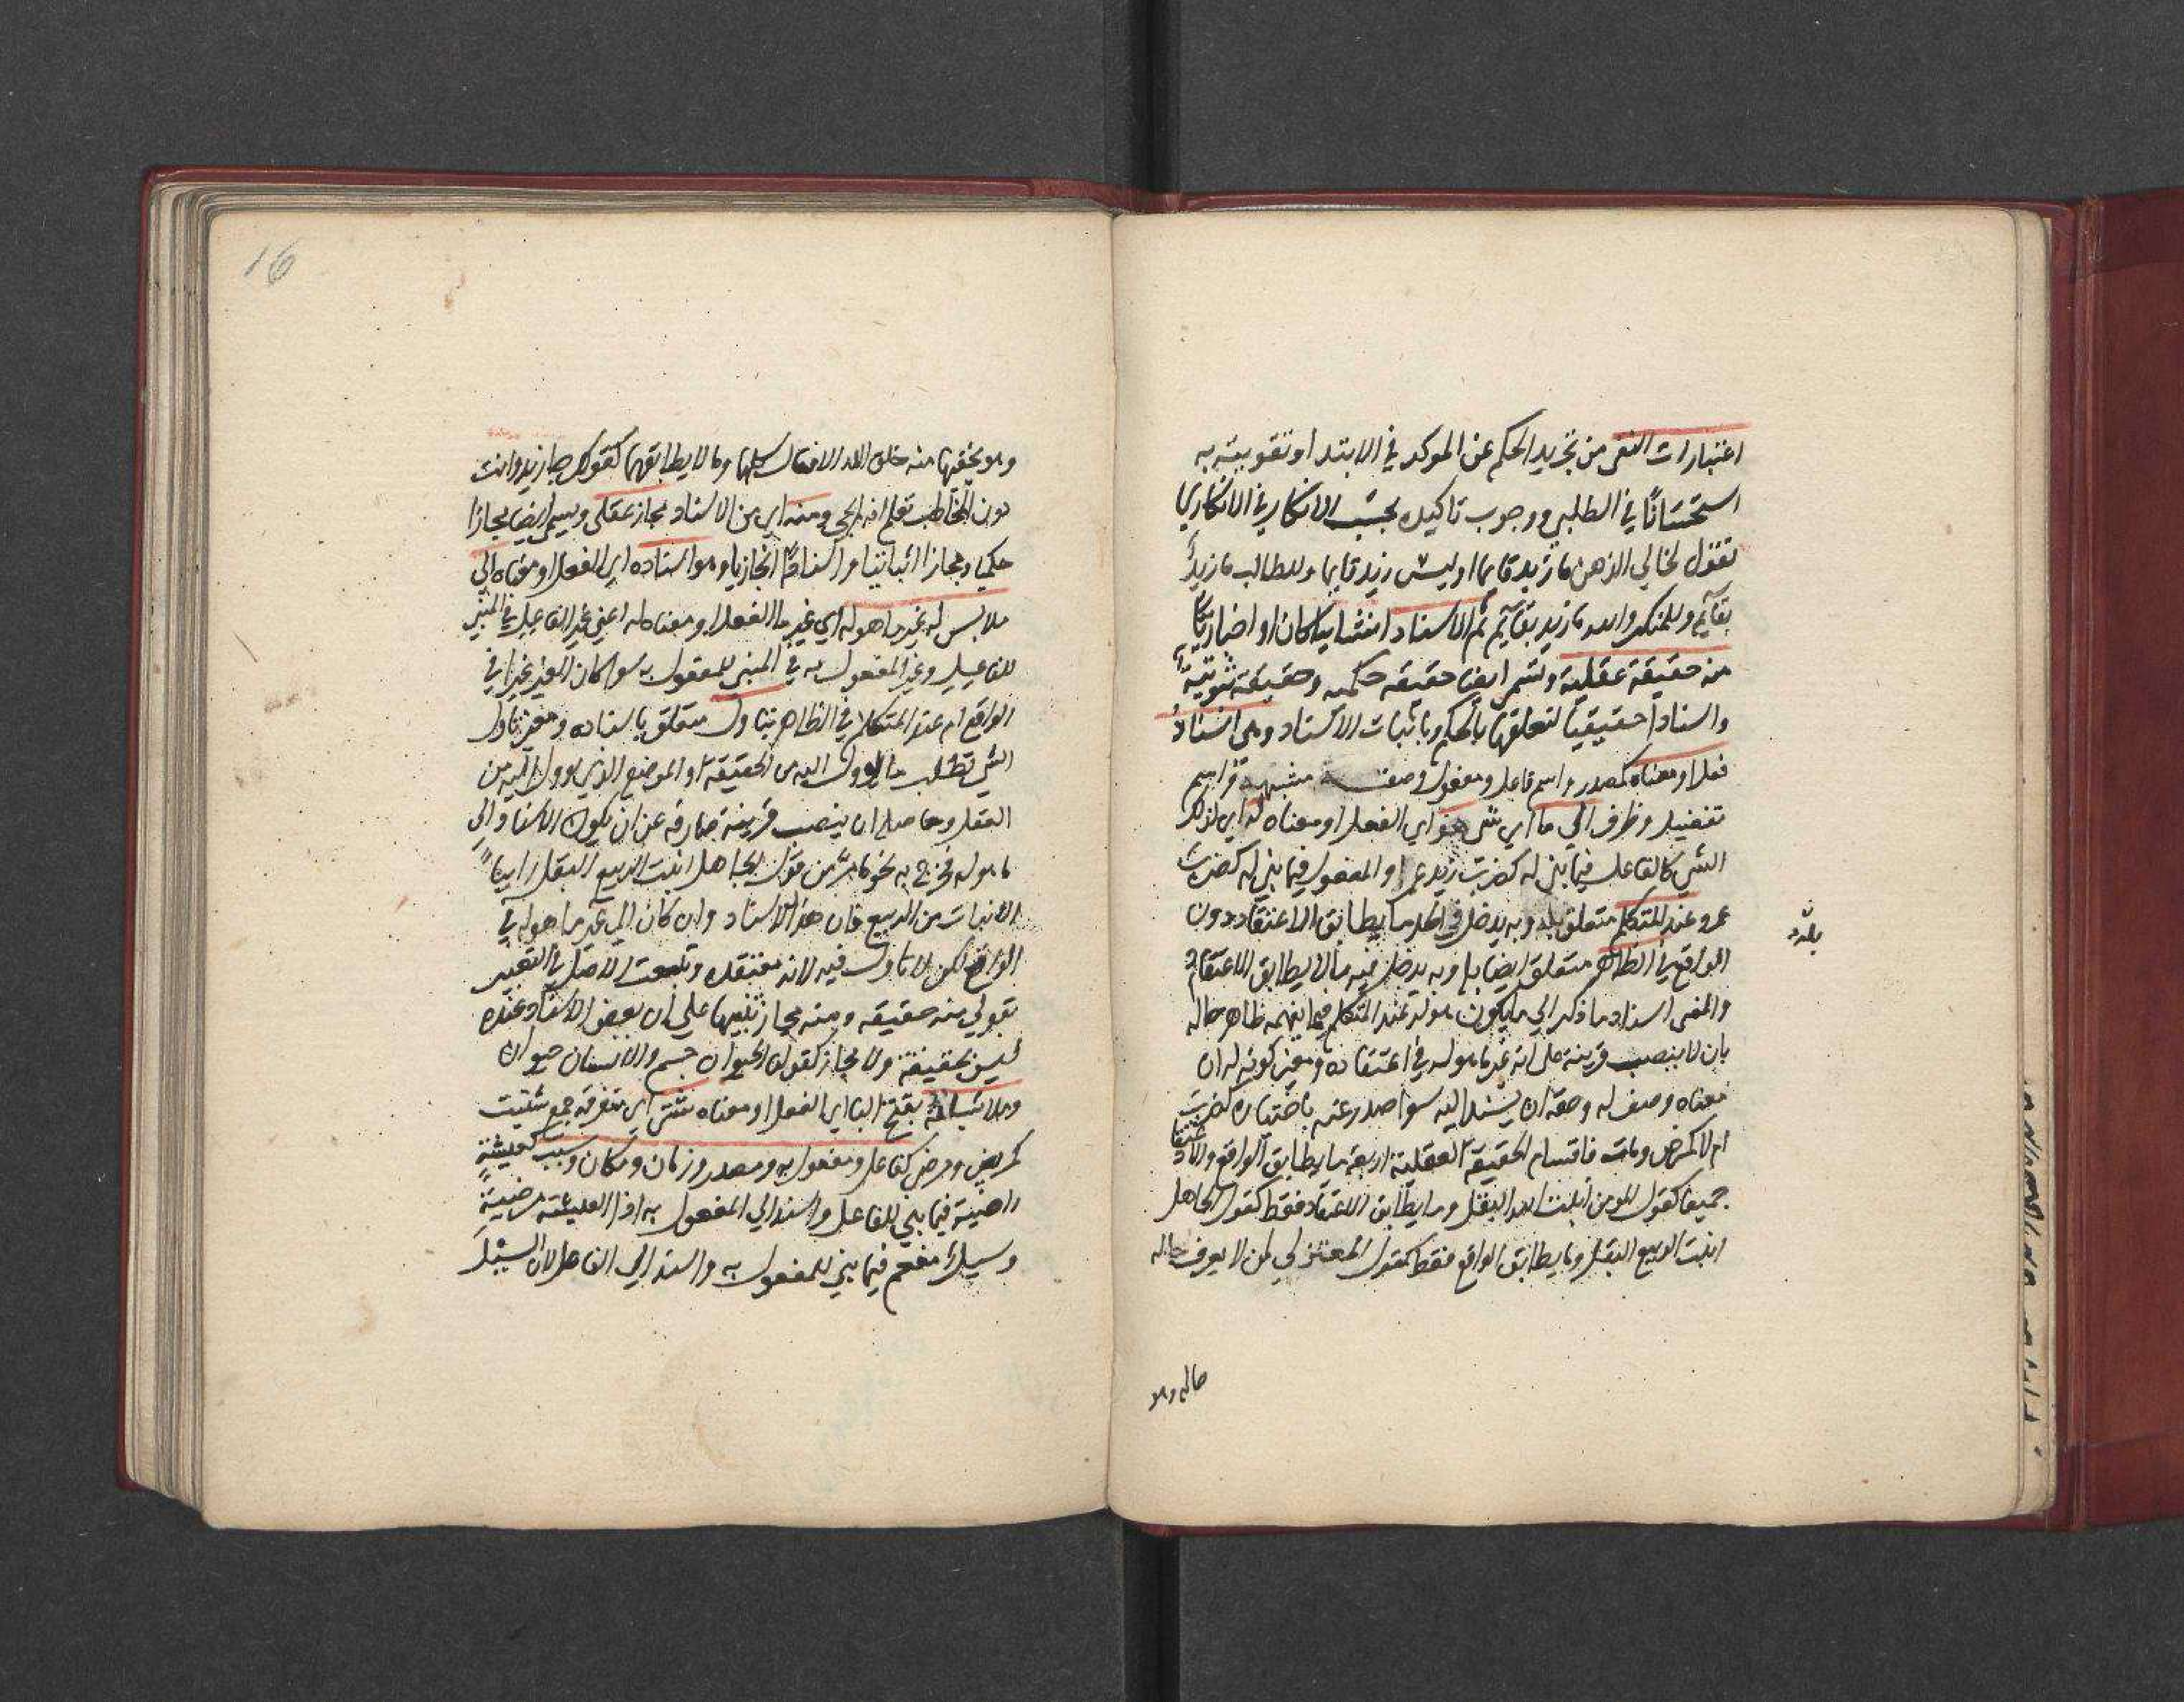 اعتبارات النفي من تجريد الحكم عن الموكد في الابتدا وتقويته به
استحسانًا في الطلبي ووجوب تاكيده بحسب الانكار في الانكاري
تقول لخالي الذهن ما زيد قايما او ليس زيد قايما وللطالب ما زيد
بقايم وللمنكر والله ما زيد بقايم ثم الاسناد انشاييا كان او اخباريا
منه حقيقة عقلية وتسمى ايضا حقيقة حكمية وحقيقة ثبوتية
واسنادا حقيقيا لتعلقها بالحكم وباثبات الاسناد وهي اسناد
فعل او معناه كمصدر واسم فاعل ومفعول وصفة مشبهة واسم
تفضيل وظرف الى ما اي شي هو اي الفعل او معناه له اي لذلك
الشي كالفاعل فيما بني له كضرب زيد عمرا او المفعول فيما بني له كضرب
عمرو عند المتكلم متعلق بله وبه يدخل في الحد ما يطابق الاعتقاد دون
بله
الواقع في الظاهر متعلق ايضا بله وبه يدخل فيه ما لا يطابق الاعتقاد
والمعنى اسناد ما ذكر الى ما يكون هو له عند المتكلم فيما يفهم من ظاهر حاله
بان لا ينصب قرينة على انه غير ما هو له في اعتقاده ومعنى كونه له ان
معناه وصف له وحقه ان يسند اليه سوا صدر عنه باختياره كضرب
ام لا كمرض ومات فاقسام الحقيقة العقلية اربعة ما يطابق الواقع والاعتقاد
جميعا كقول المومن انبت الله البقل وما يطابق الاعتقاد فقط كقول الجاهل
انبت الربيع البقل وما يطابق الواقع فقط كقول المعتزلي لمن لا يعرف حاله
حاله وهو
16
وهو يخفيها منه خلق الله الافعال كلها وما لا يطابقهما كقولك جا زيد وانت
دون المخاطب تعلم انه لم يجي ومنه اي من الاسناد مجاز عقلي ويسمى ايضا مجازا
حكميا ومجازا اثباتيا واسنادا مجازيا وهو اسناده اي الفعل او معناه الى
ملابس له غير ما هو له اي غير ما الفعل او معناه له اعني غير الفاعل في المبني
للفاعل وغير المفعول به في المبني للمفعول به سوا كان الغير غيرا في
الواقع ام عند المتكلم في الظاهر بتاول متعلق باسناده ومعنى تاول
الشي تطلب ما يوول اليه من الحقيقة او الموضع الذي يوول اليه من
العقل وحاصله ان ينصب قرينة صارفة عن ان يكون الاسناد الى
ما هو له فخرج به نحو ما مر من قول الجاهل انبت الربيع البقل رائيا
الانبات من الربيع فان هذا الاسناد وان كان الى غير ما هو له في
الواقع لكن لا تاول فيه لانه معتقده وتبعت الاصل في التعبير
بقولي منه حقيقة ومنه مجاز تنبيها على ان بعض الاسناد عنده
ليس بحقيقة ولا مجاز كقولك الحيوان جسم والانسان حيوان
وملابساته بفتح البا اي الفعل او معناه شتى اي متفرقة جمع شتيت
كمريض ومرضى كفاعل ومفعول به ومصدر وزمان ومكان وسبب كعيشة
راضية فيما بني للفاعل واسند الى المفعول به اذ العيشة مرضية
وسيل مفعم فيما بني للمفعول به واسند الى الفاعل لان السيل